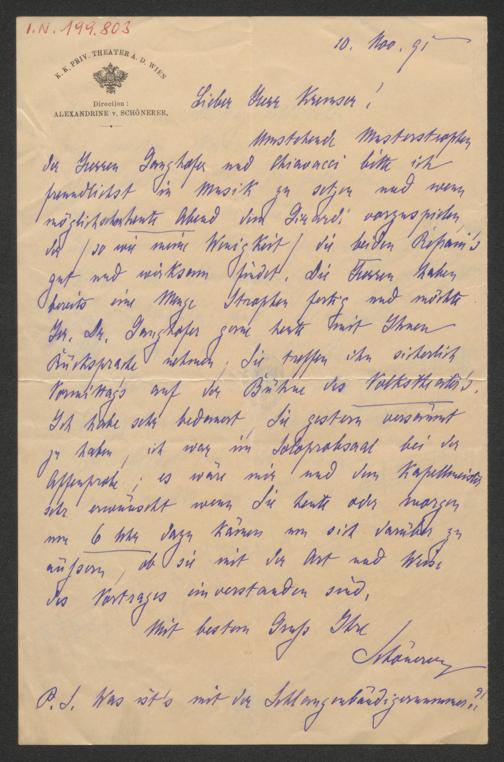 I.N. 199.803
K. K. PRIV. THEATER A. D. WIEN
Direction:
ALEXANDRINE v. SCHÖNERER.
10. Nov. 95
Lieber Herr Kremser!
Umstehende Musterstrophen
der Herren Ganghofer und Chiavacci bitte ich
freundlichst in Musik zu setzen und wenn
möglich heute Abend dem Girardi vorzuspielen,
der /so wie meine Wenigkeit/ die beiden Refrain's
gut und wirksam findet. Die Herren haben
bereits eine Menge Strophen fertig und möchte
Hr. Dr. Ganghofer gerne heute mit Ihnen
Rücksprache nehmen, Sie treffen ihn sicherlich
Vormittags auf der Bühne des Volkstheater's.
Ich habe sehr bedauert, Sie gestern versäumt
zu haben, ich war im Soloprobsaal bei der
Affenprobe; es wäre mir und dem Kapellmeister
sehr erwünscht wenn Sie heute oder morgen
um 6 Uhr dazu kämen um sich darüber zu
äußern, ob sie mit der Art und Weise
des Vortrages einverstanden sind.
Mit bestem Gruß Ihre
Schönerer
P. S. Was ist's mit der Schlangenbändigernummer?!